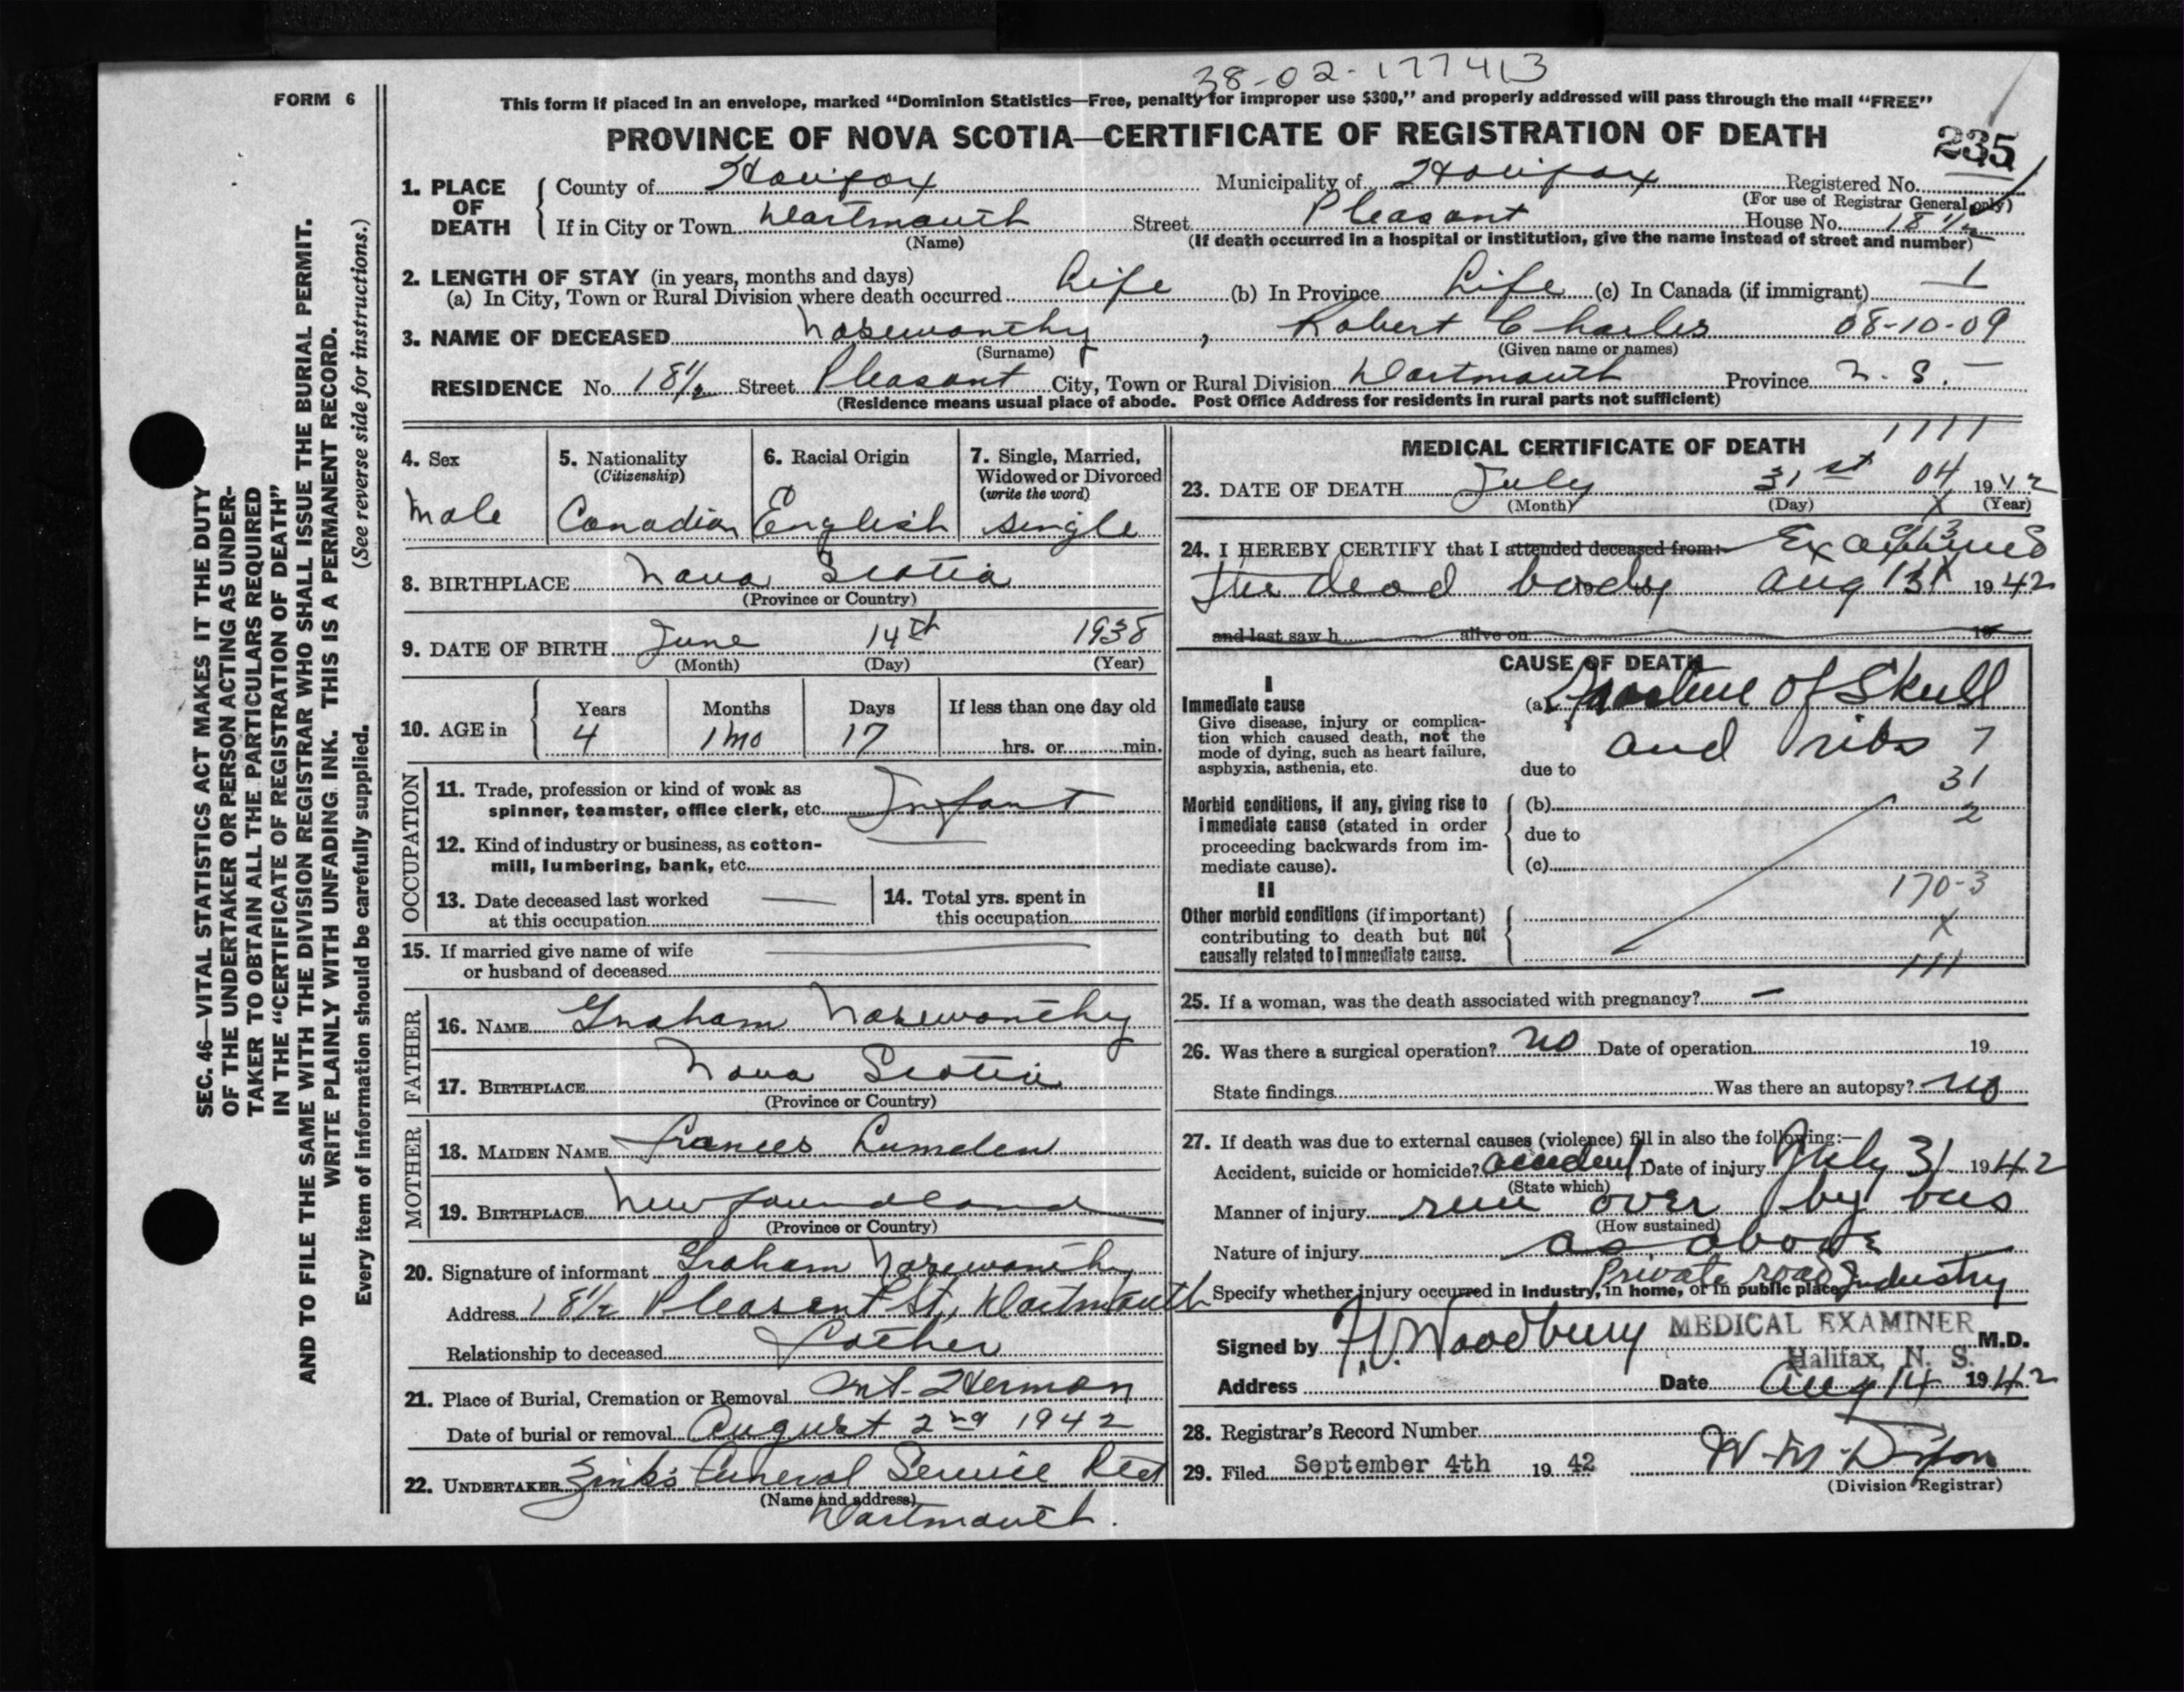 38-02-177413
FORM 6
This form if placed in an envelope, marked “Dominion Statistics—Free, penalty for improper use $300,” and properly addressed will pass through the mail “FREE”
PROVINCE OF NOVA SCOTIA—CERTIFICATE OF REGISTRATION OF DEATH
235
1. PLACE OF DEATH
County of Halifax Municipality of Halifax Registered No.
(For use of Registrar General only)
If in City or Town Dartmouth Street Pleasant House No. 18 1/2
(Name) (If death occurred in a hospital or institution, give the name instead of street and number)
2. LENGTH OF STAY (in years, months and days)
(a) In City, Town or Rural Division where death occurred Life (b) In Province Life (c) In Canada (if immigrant)
3. NAME OF DECEASED Noseworthy, Robert Charles 08-10-09
(Surname) (Given name or names)
RESIDENCE No. 18 1/2 Street Pleasant City, Town or Rural Division Dartmouth Province N. S.
(Residence means usual place of abode. Post Office Address for residents in rural parts not sufficient)
4. Sex
Male
5. Nationality
(Citizenship)
Canadian
6. Racial Origin
English
7. Single, Married,
Widowed or Divorced
(write the word)
single
8. BIRTHPLACE Nova Scotia
(Province or Country)
9. DATE OF BIRTH June 14th 1938
(Month) (Day) (Year)
10. AGE in
Years Months Days If less than one day old
4 1 mo 17 hrs. or min.
OCCUPATION
11. Trade, profession or kind of work as
spinner, teamster, office clerk, etc. Infant
12. Kind of industry or business, as cotton-
mill, lumbering, bank, etc.
13. Date deceased last worked
at this occupation
14. Total yrs. spent in
this occupation
15. If married give name of wife
or husband of deceased
FATHER
16. NAME Graham Noseworthy
17. BIRTHPLACE Nova Scotia
(Province or Country)
MOTHER
18. MAIDEN NAME Frances Lumsden
19. BIRTHPLACE Newfoundland
(Province or Country)
20. Signature of informant Graham Noseworthy
Address 18 1/2 Pleasant St, Dartmouth
Relationship to deceased Father
21. Place of Burial, Cremation or Removal Mt. Hermon
Date of burial or removal August 2nd 1942
22. UNDERTAKER Zink's Funeral Service Ltd
(Name and address)
Dartmouth.
MEDICAL CERTIFICATE OF DEATH
1111
23. DATE OF DEATH July 31st 04 1942
(Month) (Day) (Year)
X
24. I HEREBY CERTIFY that I attended deceased from: Examined
the dead body Aug 1942
and last saw h alive on 19
CAUSE OF DEATH
I
Immediate cause
Give disease, injury or complica-
tion which caused death, not the
mode of dying, such as heart failure,
asphyxia, asthenia, etc.
(a) Fracture of Skull
and ribs 7
due to
31
Morbid conditions, if any, giving rise to
immediate cause (stated in order
proceeding backwards from im-
mediate cause).
(b)
2
due to
(c)
II
170-3
Other morbid conditions (if important)
contributing to death but not
causally related to immediate cause.
X
111
25. If a woman, was the death associated with pregnancy?
26. Was there a surgical operation? no Date of operation 19
State findings Was there an autopsy? no
27. If death was due to external causes (violence) fill in also the following:—
Accident, suicide or homicide? accident Date of injury July 31 1942
(State which)
Manner of injury run over by bus
(How sustained)
Nature of injury as above
Private road Industry
Specify whether injury occurred in Industry, in home, or in public place
Signed by F.V. Woodbury MEDICAL EXAMINER M.D.
Halifax, N. S.
Address Date Aug 14 1942
28. Registrar's Record Number
29. Filed September 4th 1942
(Division Registrar)
SEC. 46—VITAL STATISTICS ACT MAKES IT THE DUTY
OF THE UNDERTAKER OR PERSON ACTING AS UNDER-
TAKER TO OBTAIN ALL THE PARTICULARS REQUIRED
IN THE “CERTIFICATE OF REGISTRATION OF DEATH”
AND TO FILE THE SAME WITH THE DIVISION REGISTRAR WHO SHALL ISSUE THE BURIAL PERMIT.
WRITE PLAINLY WITH UNFADING INK. THIS IS A PERMANENT RECORD.
Every item of information should be carefully supplied. (See reverse side for instructions.)